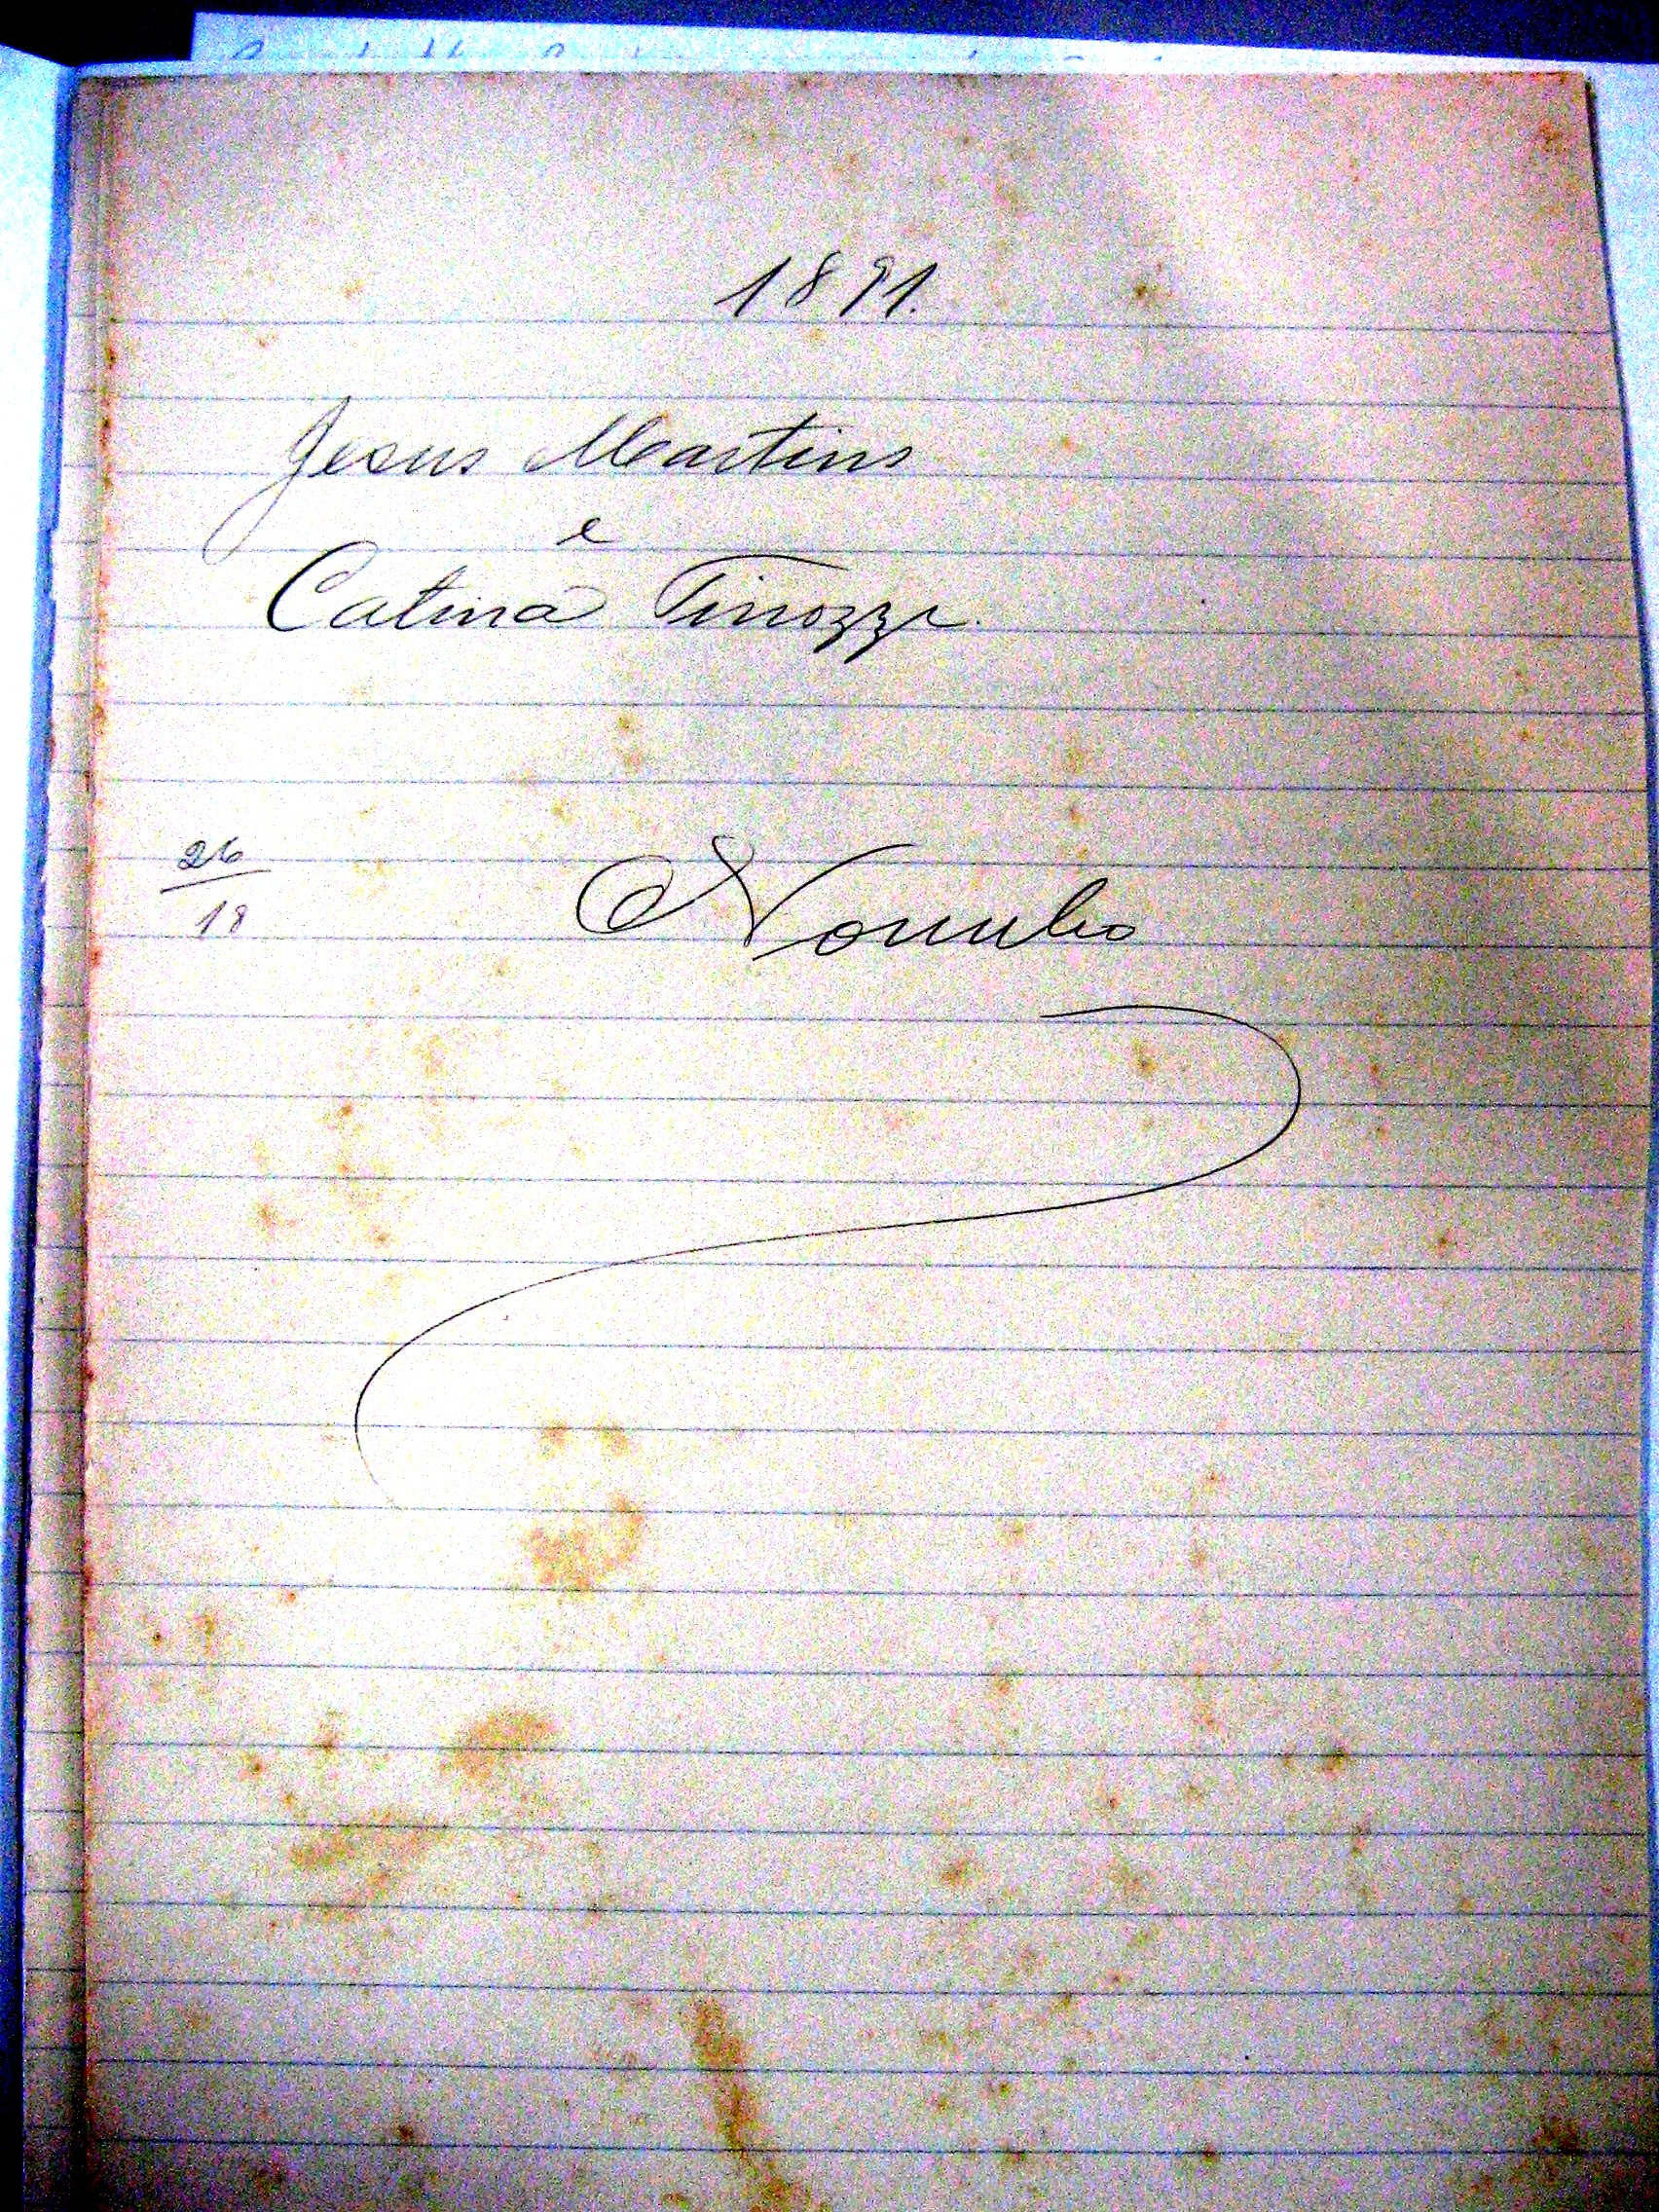 1891.
Jesus Martins
e
Catina Tinozzi.
26
18